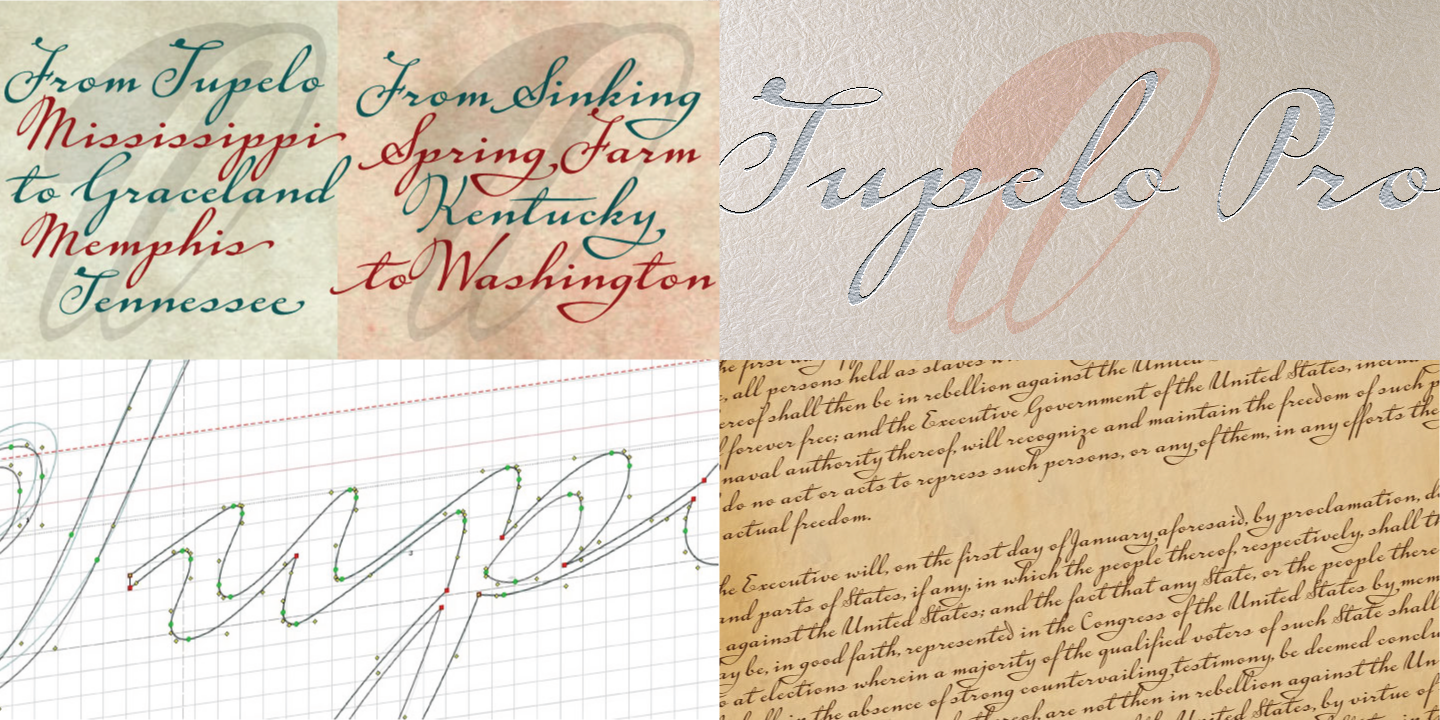 From Tupelo
Mississippi
to Graceland
Memphis
Tennessee
From Sinking
Spring Farm
Kentucky
to Washington
Tupelo Pro
all persons held as slaves
shall then be in rebellion against the United
forever free; and the Executive Government of the United States,
naval authority thereof, will recognize and maintain the freedom of such
do no act or acts to repress such persons, or any of them, in any efforts
actual freedom.
Executive will, on the first day of January aforesaid, by proclamation,
and parts of States, if any, in which the people thereof, respectively, shall
against the United States; and the fact that any State, or the people
be, in good faith, represented in the Congress of the United States by
at elections wherein a majority of the qualified voters of such State shall
in the absence of strong countervailing testimony, be deemed
are not then in rebellion against the
States, by virtue of
up